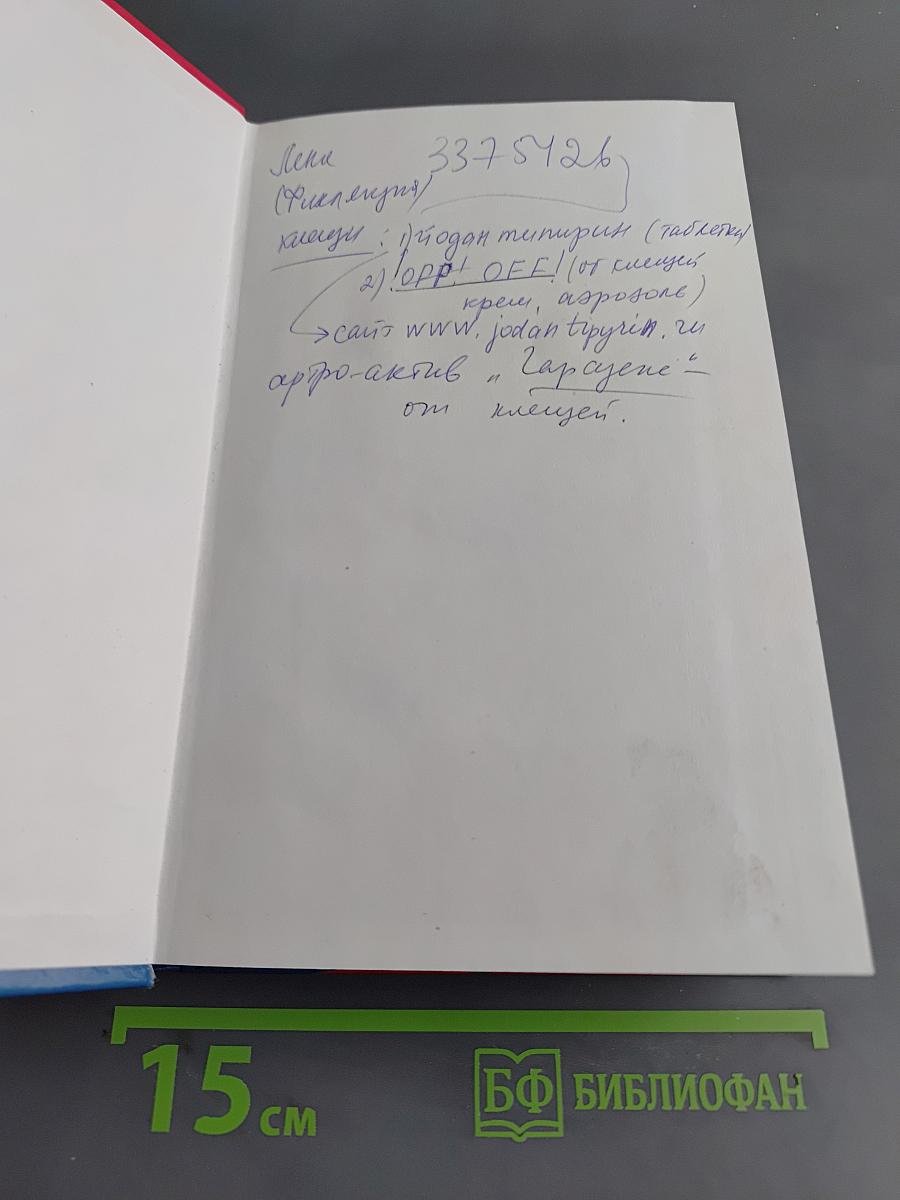 Лена 3375426
(Финляндия)
клещи: 1) йодантипирин (таблетки)
2) !OPP! OFF! (от клещей
крем, аэрозоль)
→ сайт www.jodantipyrin.ru
артро-актив „
от клещей.
15 см
БФ БИБЛИОФАН